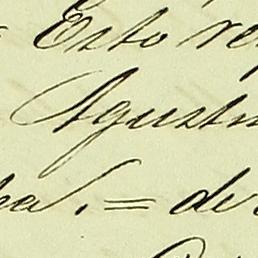 Esto re
Agustin
ha. = de